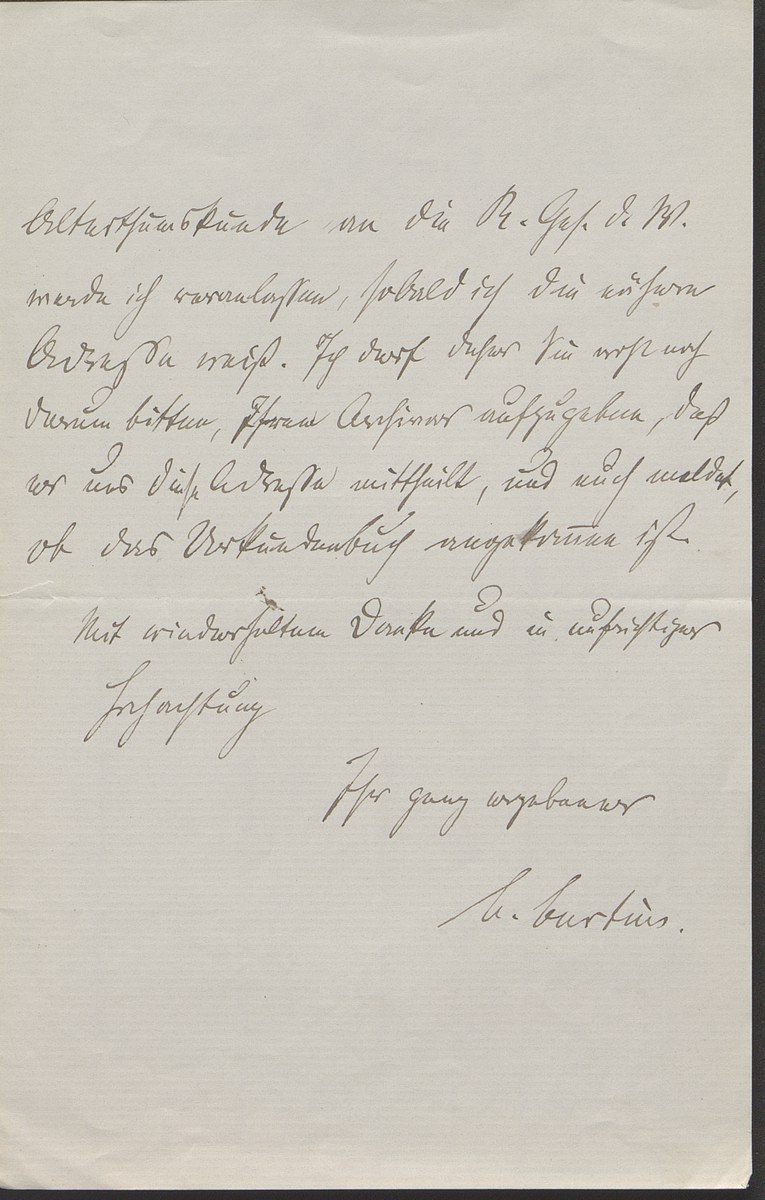 Alterthumskunde an die K. Ges. d. W.
werde ich veranlassen, sobald ich die nähere
Adresse weiß. Ich darf daher Sie wohl noch
darum bitten, Ihren Archivar aufzugeben, daß
er uns diese Adresse mittheilt, und auch meldet,
ob das Urkundenbuch angekom̄en ist.
Mit wiederholtem Danke und in aufrichtiger
Hochachtung
Ihr ganz ergebener
C. Curtius.